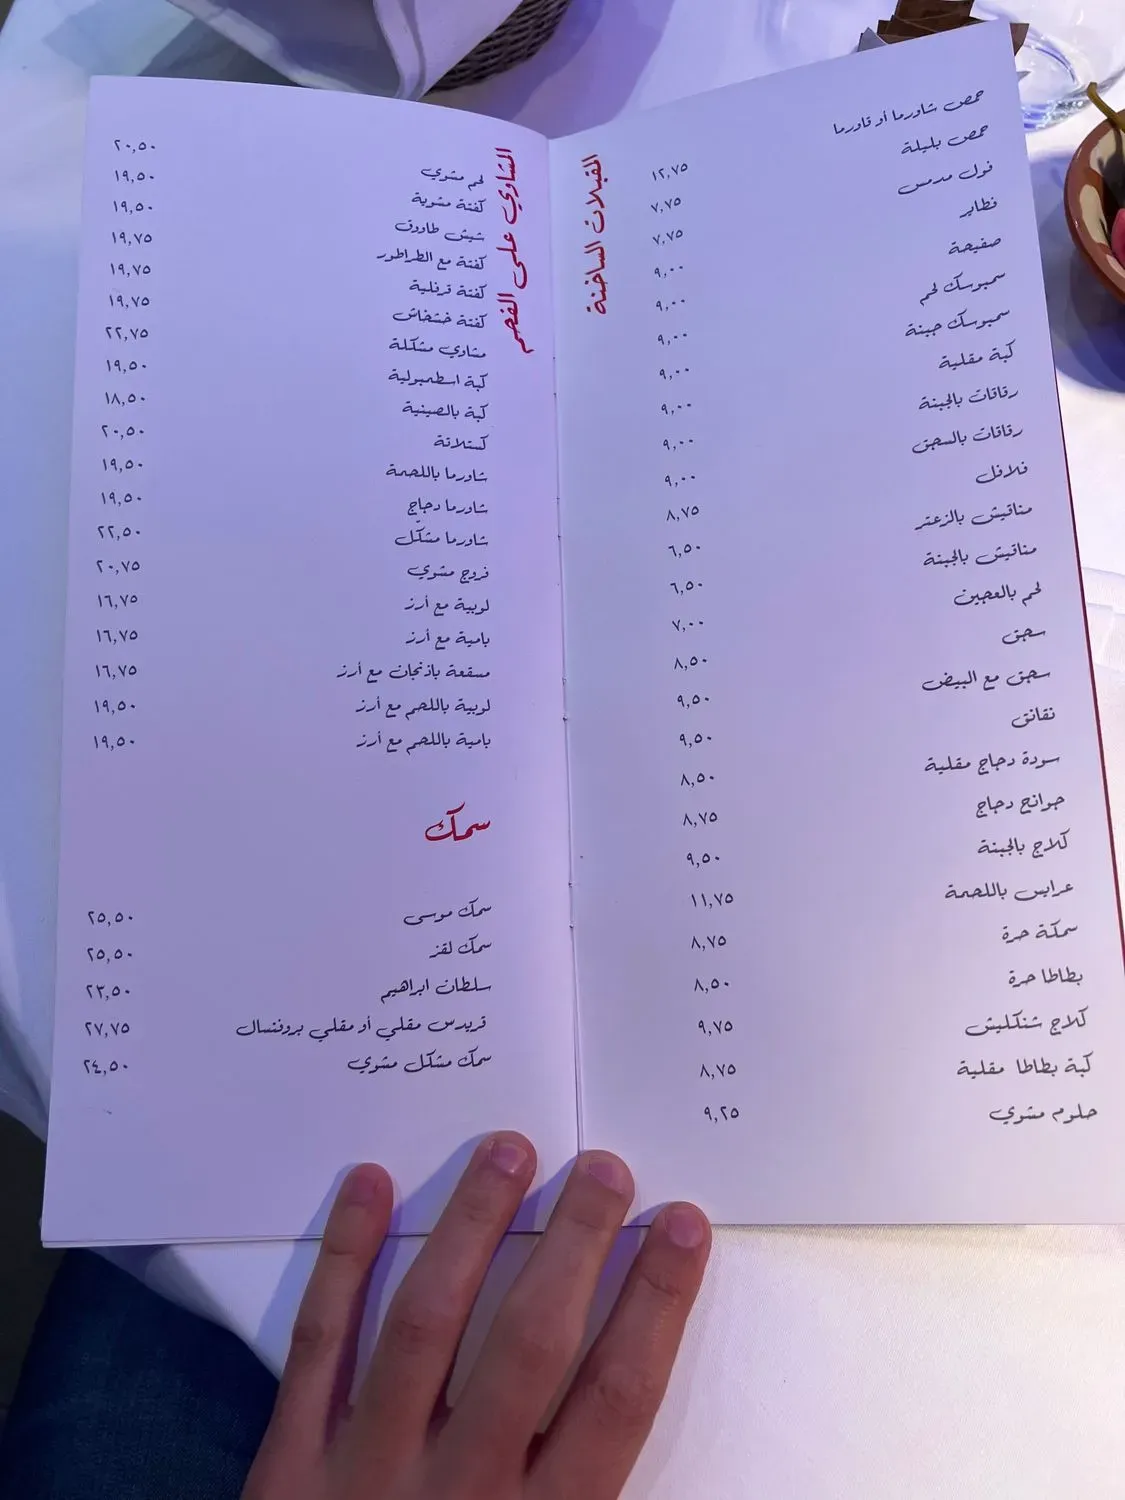 المقبلات الساخنة
حمص شاورما أو قاورما ١٢,٧٥
حمص بليلة ٧,٧٥
فول مدمس ٧,٧٥
فطاير ٩,٠٠
صفيحة ٩,٠٠
سمبوسك لحم ٩,٠٠
سمبوسك جبنة ٩,٠٠
كبة مقلية ٩,٠٠
رقاقات بالجبنة ٩,٠٠
رقاقات بالسجق ٩,٠٠
فلافل ٨,٧٥
مناقيش بالزعتر ٦,٥٠
مناقيش بالجبنة ٦,٥٠
لحم بالعجين ٧,٠٠
سجق ٨,٥٠
سجق مع البيض ٩,٥٠
نقانق ٩,٥٠
سودة دجاج مقلية ٨,٥٠
جوانح دجاج ٨,٧٥
كلاج بالجبنة ٩,٥٠
عرايس باللحمة ١١,٧٥
سمكة حرة ٨,٧٥
بطاطا حرة ٨,٥٠
كلاج شنكليش ٩,٧٥
كبة بطاطا مقلية ٨,٧٥
حلوم مشوي ٩,٢٥
المشاوي على الفحم
لحم مشوي ٢٠,٥٠
كفتة مشوية ١٩,٥٠
شيش طاووق ١٩,٥٠
كفتة مع الطراطور ١٩,٧٥
كفتة قرفلية ١٩,٧٥
كفتة خشخاش ١٩,٧٥
مشاوي مشكلة ٢٢,٧٥
كبة اسطمبولية ١٩,٥٠
كبة بالصينية ١٨,٥٠
كستلاتة ٢٠,٥٠
شاورما باللحمة ١٩,٥٠
شاورما دجاج ١٩,٥٠
شاورما مشكّل ٢٢,٥٠
فروج مشوي ٢٠,٧٥
لوبية مع أرز ١٦,٧٥
بامية مع أرز ١٦,٧٥
مسقعة باذنجان مع أرز ١٦,٧٥
لوبية باللحم مع أرز ١٩,٥٠
بامية باللحم مع أرز ١٩,٥٠
سمك
سمك موسى ٢٥,٥٠
سمك لقز ٢٥,٥٠
سلطان ابراهيم ٢٣,٥٠
قريدس مقلي أو مقلي بروفنسال ٢٧,٧٥
سمك مشكل مشوي ٢٤,٥٠